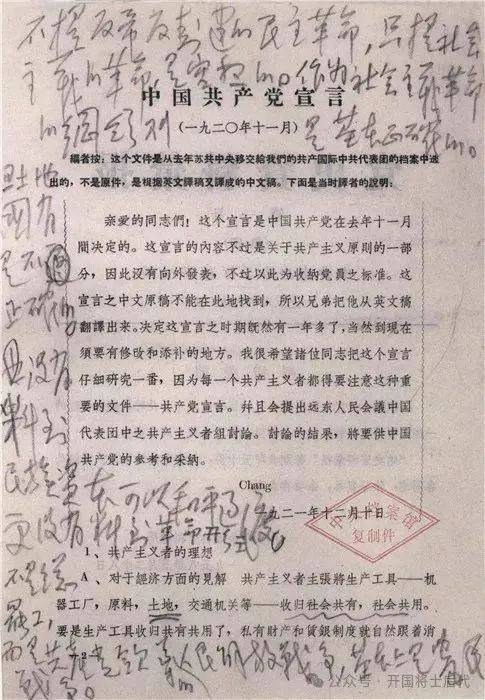 不提反帝反封建的民主革命，只提社会
主义的革命，是空想的。作为社会主义革命
的纲领则是基本正确的。
中国共产党宣言
（一九二〇年十一月）
編者按：这个文件是从去年苏共中央移交給我們的共产国际中共代表团的档案中选
出的，不是原件，是根据英文譯稿又譯成的中文稿。下面是当时譯者的說明：
亲爱的同志們！这个宣言是中国共产党在去年十一月
間决定的。这宣言的內容不过是关于共产主义原则的一部
分，因此沒有向外發表，不过以此为收納党員之标准。这
宣言之中文原稿不能在此地找到，所以兄弟把他从英文稿
翻譯出来。决定这宣言之时期旣然有一年多了，当然到现在
須要有修改和添补的地方。我很希望諸位同志把这个宣言
仔細研究一番，因为每一个共产主义者都得要注意这种重
要的文件——共产党宣言。幷且会提出远东人民会議中国
代表团中之共产主义者組討論。討論的结果，將要供中国
共产党的参考和采納。
Chang
一九二一年十二月十日
1、共产主义者的理想
A、对于經济方面的見解　共产主义者主張將生产工具——机
器工厂，原料，土地，交通机关等——收归社会共有，社会共用。
要是生产工具收归共有共用了，私有財产和賃銀制度就自然跟着消
土地
国有
是不
正确的
没有
料到
民族资本可以和平过渡
更没有料到革命形式
不是总
罢工，
而是共产党领导的人民解放战争，基本上是农民
中央档案馆
复制件
公众号·开国将士后代